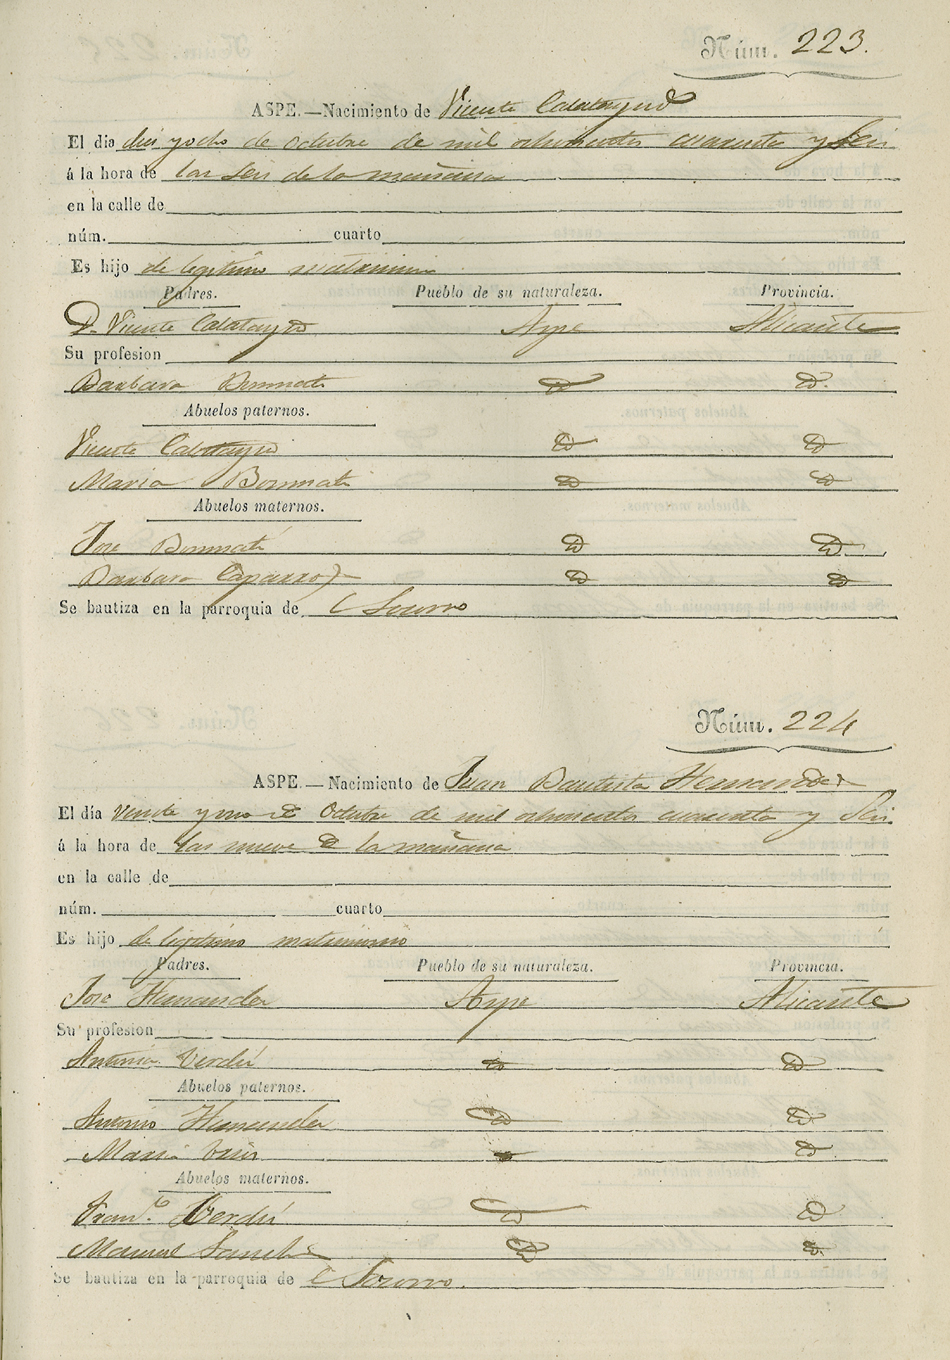 Núm. 223.
ASPE.—Nacimiento de Vicente Calatayud
El dia diez y ocho de Octubre de mil ochocientos cuarenta y seis
á la hora de las seis de la mañana
en la calle de
núm. cuarto
Es hijo de legitimo matrimonio
Padres. Pueblo de su naturaleza. Provincia.
D. Vicente Calatayud Aspe Alicante
Su profesion
Barbara Bonmati id id.
Abuelos paternos.
Vicente Calatayud id id
Maria Bonmati id id
Abuelos maternos.
Jose Bonmatí id id
Barbara Caparros id id
Se bautiza en la parroquia de l Socorro
Núm. 224
ASPE.—Nacimiento de Juan Bautista Hernandez
El día veinte y uno de Octubre de mil ochocientos cuarenta y seis.
á la hora de las nueve de la mañana
en la calle de
núm. cuarto
Es hijo de legitimo matrimonio
Padres. Pueblo de su naturaleza. Provincia.
Jose Hernandez Aspe Alicante
Su profesion
Antonia Verdú id id
Abuelos paternos.
Antonio Hernandez id id
Maria id id
Abuelos maternos.
Fran.co Verdú id id
Manuel Sanchez id id.
Se bautiza en la parroquia de l Socorro.